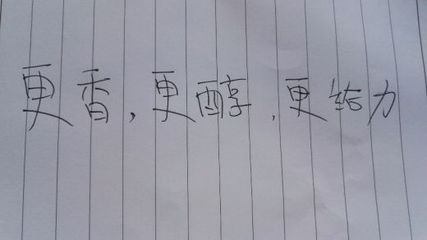 更香，更醇，更给力